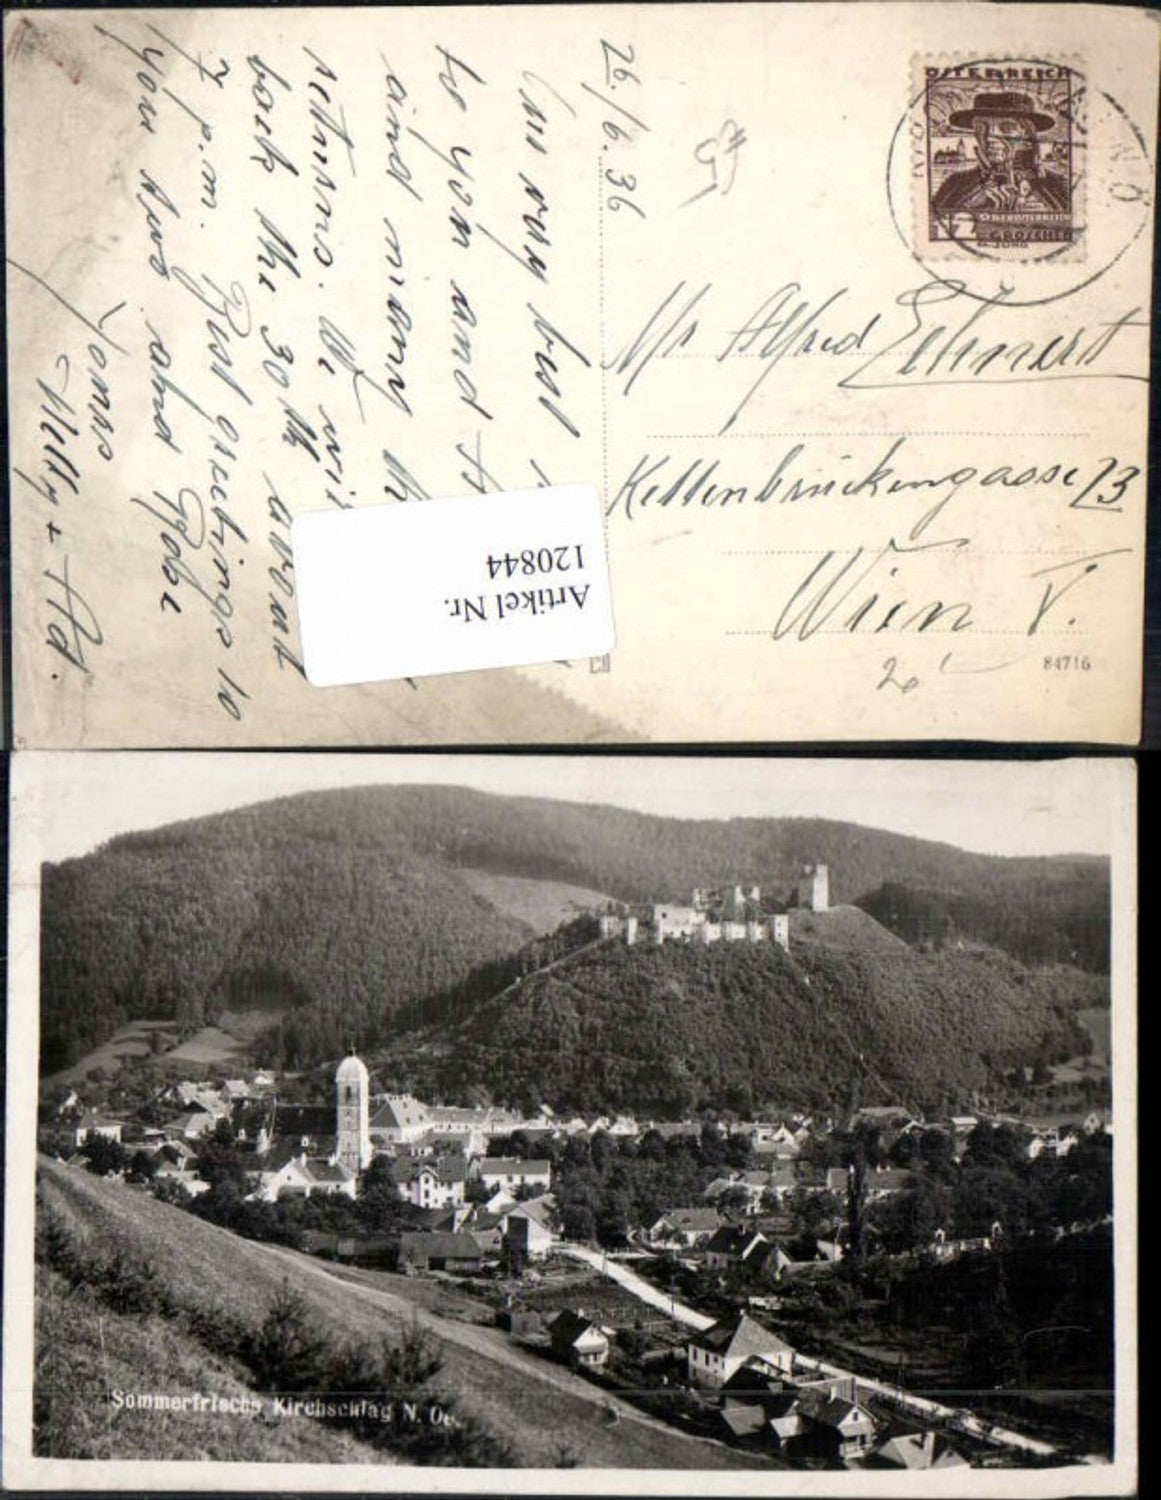 26./6.36
Our very best
to you and
and many
returns. We
back the 30th about
7 p.m. Best greetings to
you two and
Yours
Milly + Ad.
ÖSTERREICH
OBERÖSTERREICH
GROSCHEN
Mr Alfred Lehnert
Kettenbrückengasse 23
Wien V.
84716
Artikel Nr.
120844
Sommerfrische Kirchschlag N. Oe.